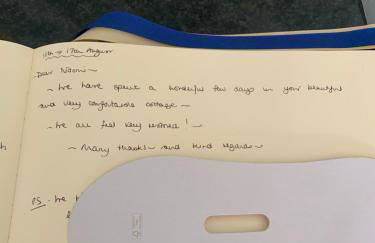 11th → 17th August
Dear Naomi ~
~ We have spent a wonderful few days in your beautiful
and very comfortable cottage ~
~ We all feel very rested! ~
~ Many thanks ~ and kind regards ~
PS. We